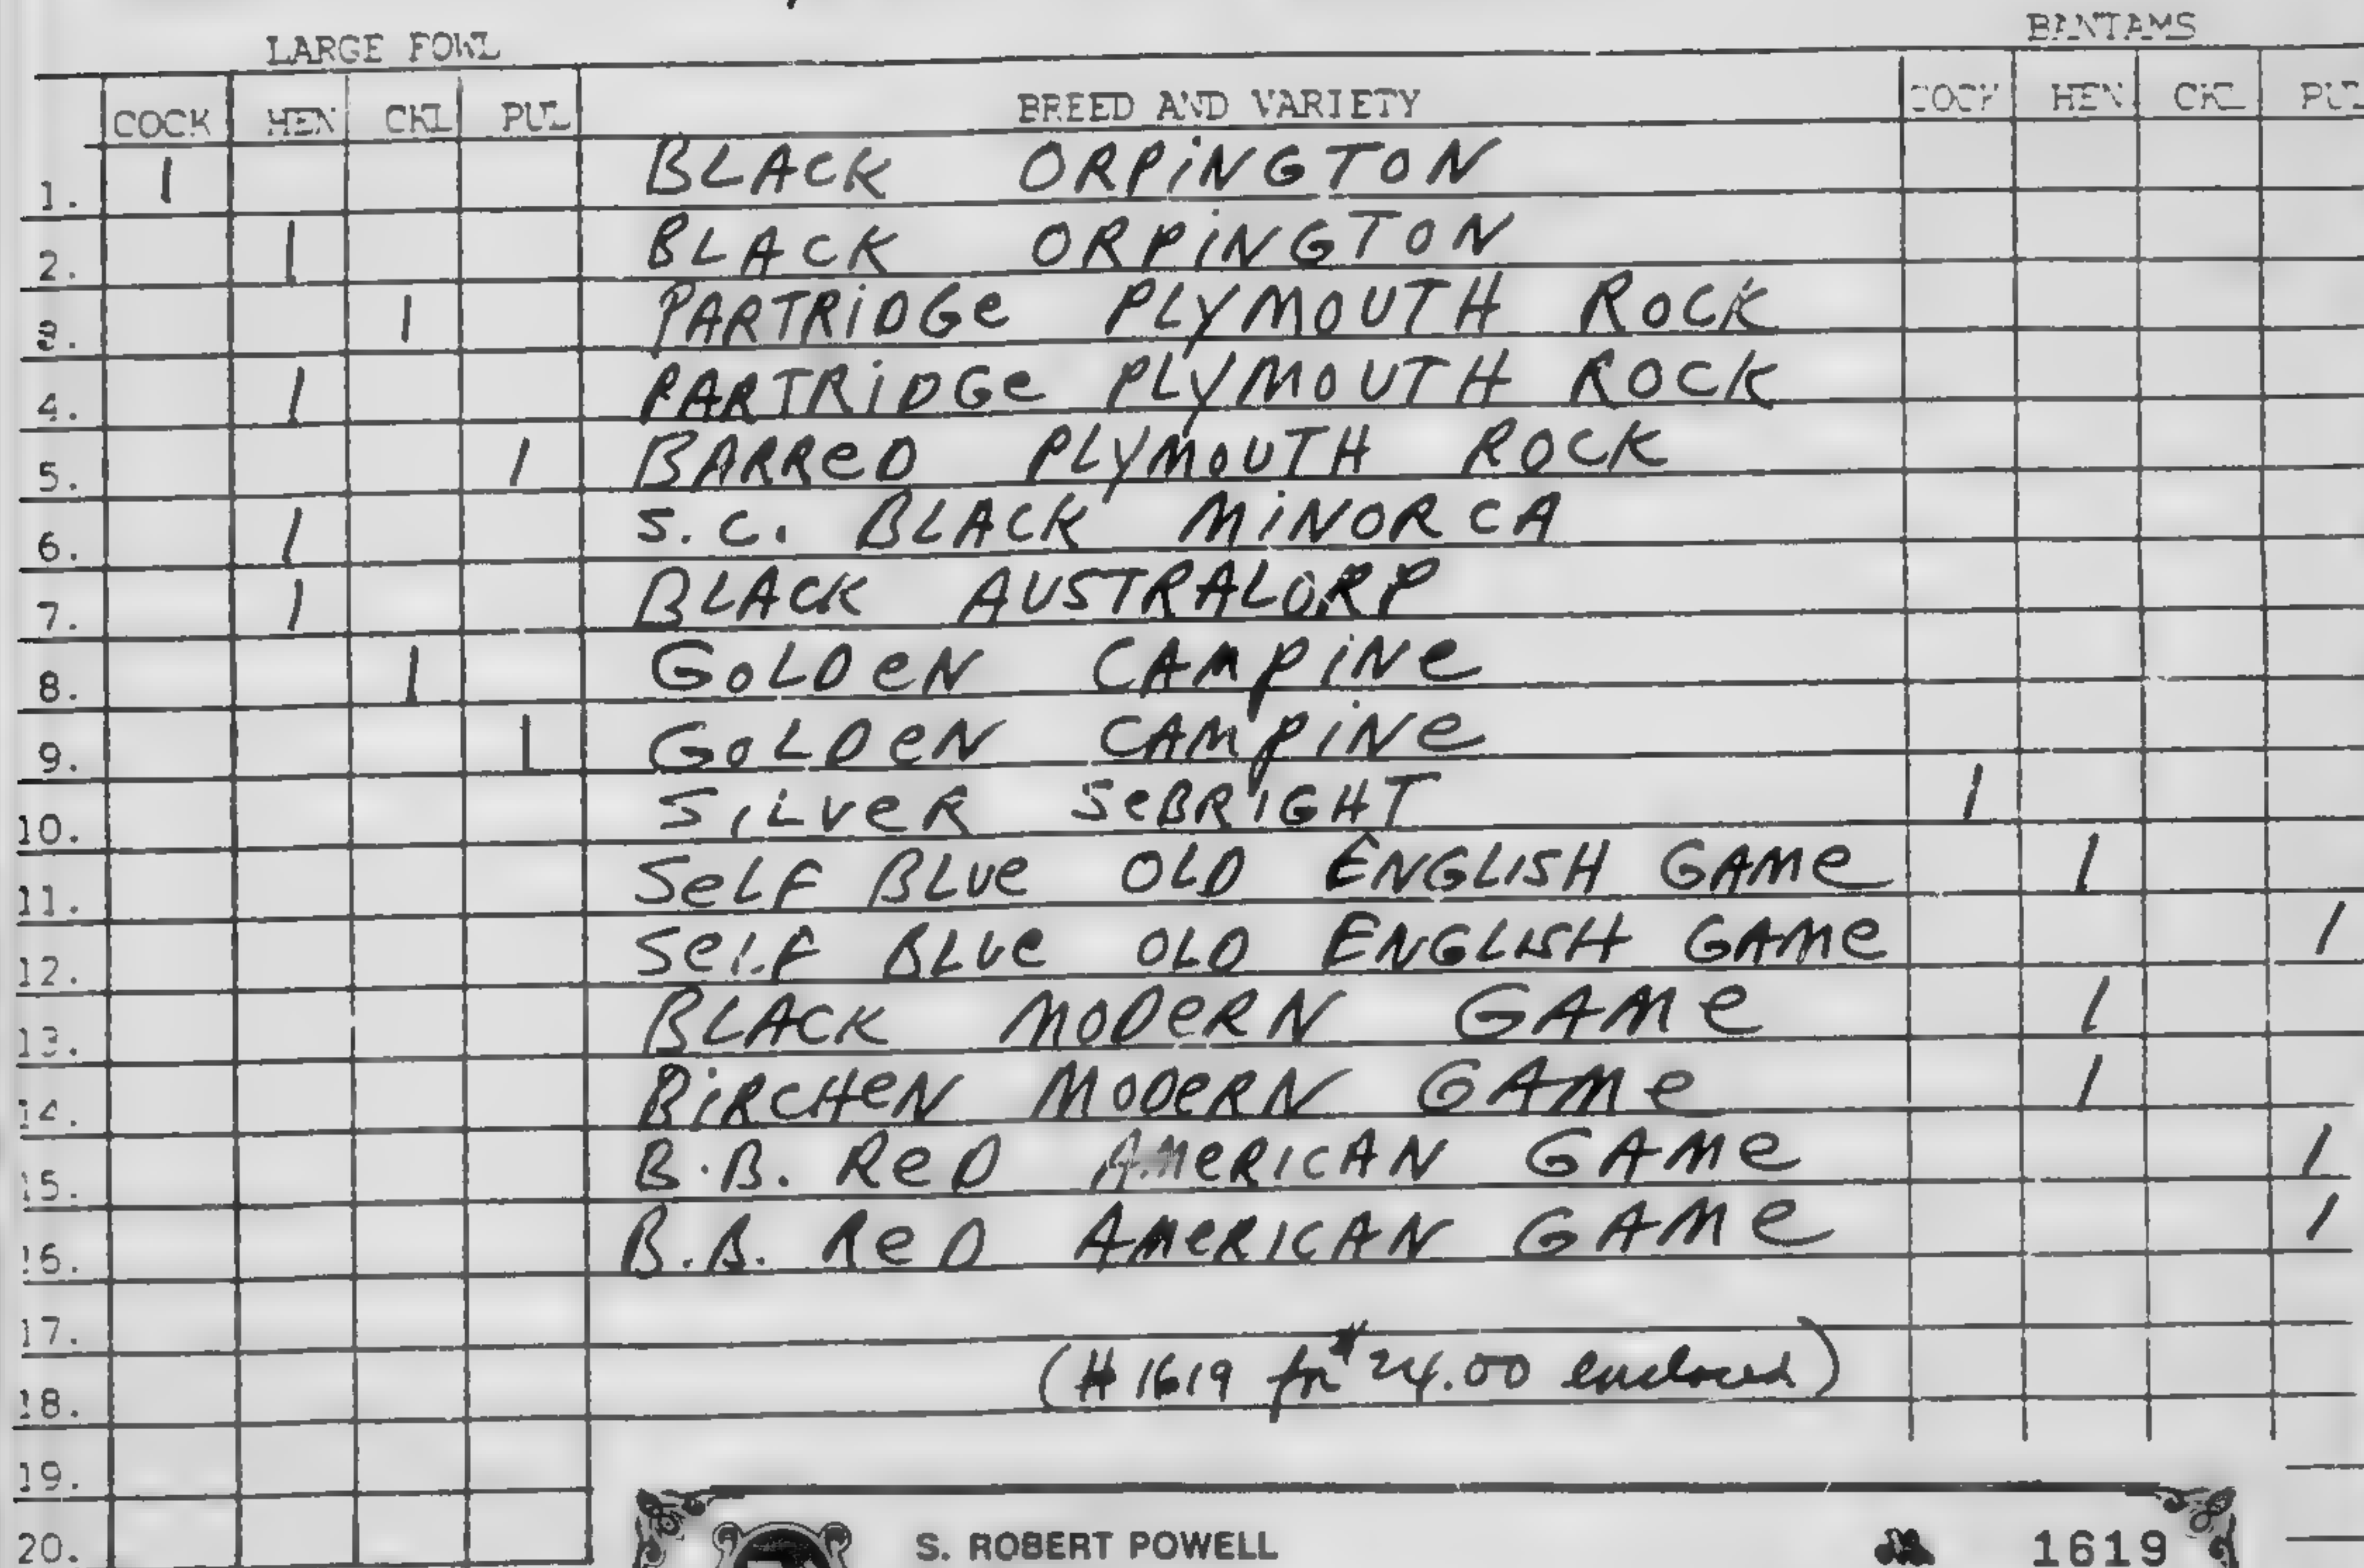 LARGE FOWL BANTAMS
COCK HEN CKL PUL BREED AND VARIETY COCK HEN CKL PUL
1. 1 BLACK ORPiNGTON
2. 1 BLACK ORPiNGTON
3. 1 PARTRiDGe PLYMOUTH ROCK
4. 1 PARTRiDGe PLYMOUTH ROCK
5. 1 BARReD PLYMOUTH ROCK
6. 1 S.C. BLACK MiNORCA
7. 1 BLACK AUSTRALORP
8. 1 GOLDeN CAMPiNe
9. 1 GOLDeN CAMPiNe
10. SILVeR SeBRIGHT 1
11. SeLF BLUe OLD ENGLISH GAMe 1
12. SeLF BLUe OLD ENGLISH GAMe 1
13. BLACK MODeRN GAMe 1
14. BiRCHeN MODeRN GAMe 1
15. B.B. ReD AMeRICAN GAMe 1
16. B.B. ReD AMeRICAN GAMe 1
17.
18. (#1619 for $24.00 enclosed)
19.
20. S. ROBERT POWELL 1619